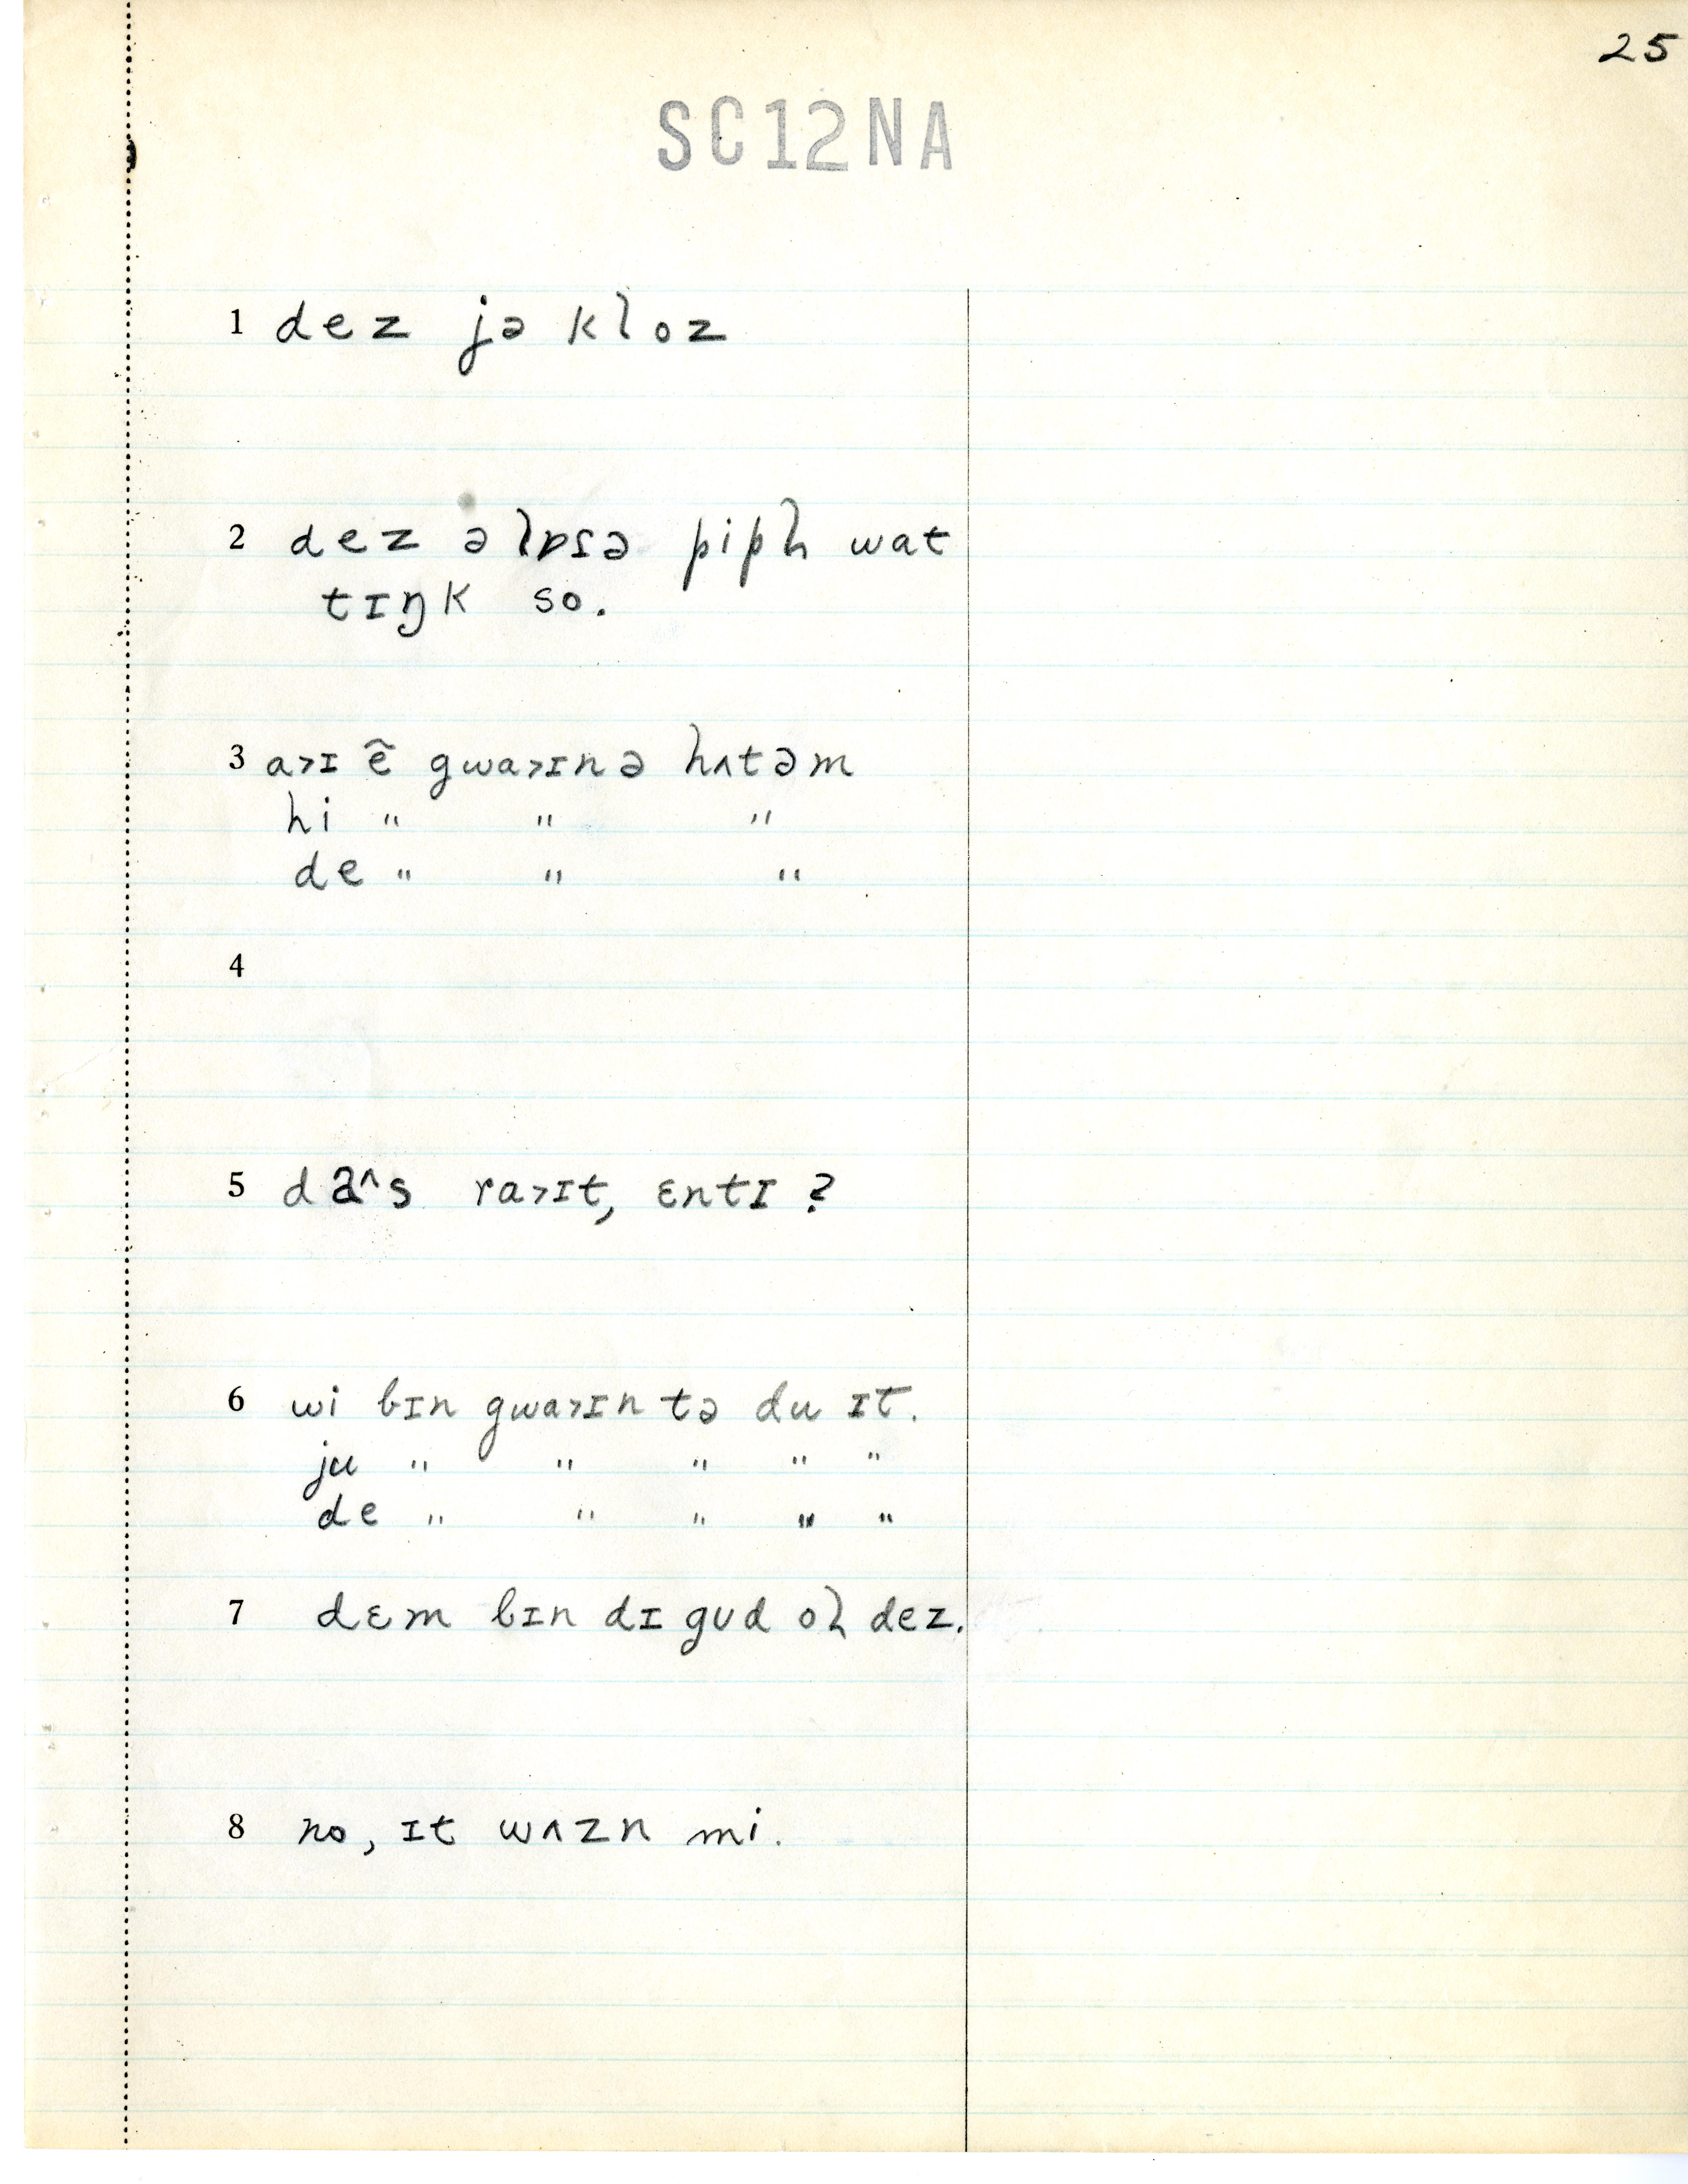 25
SC12NA
1 dez jə kloz
2 dez ə lɒsə pipl wat
tɪŋk so.
3 a˃ɪ ẽ gwa˃ɪnə hʌtəm
hi " " "
de " " "
4
5 da^s ra˃ɪt, ɛntɪ?
6 wi bɪn gwa˃ɪn tə du ɪt.
ju " " " " "
de " " " " "
7 dɛm bɪn dɪ gud ol dez.
8 no, ɪt wʌzn mi.